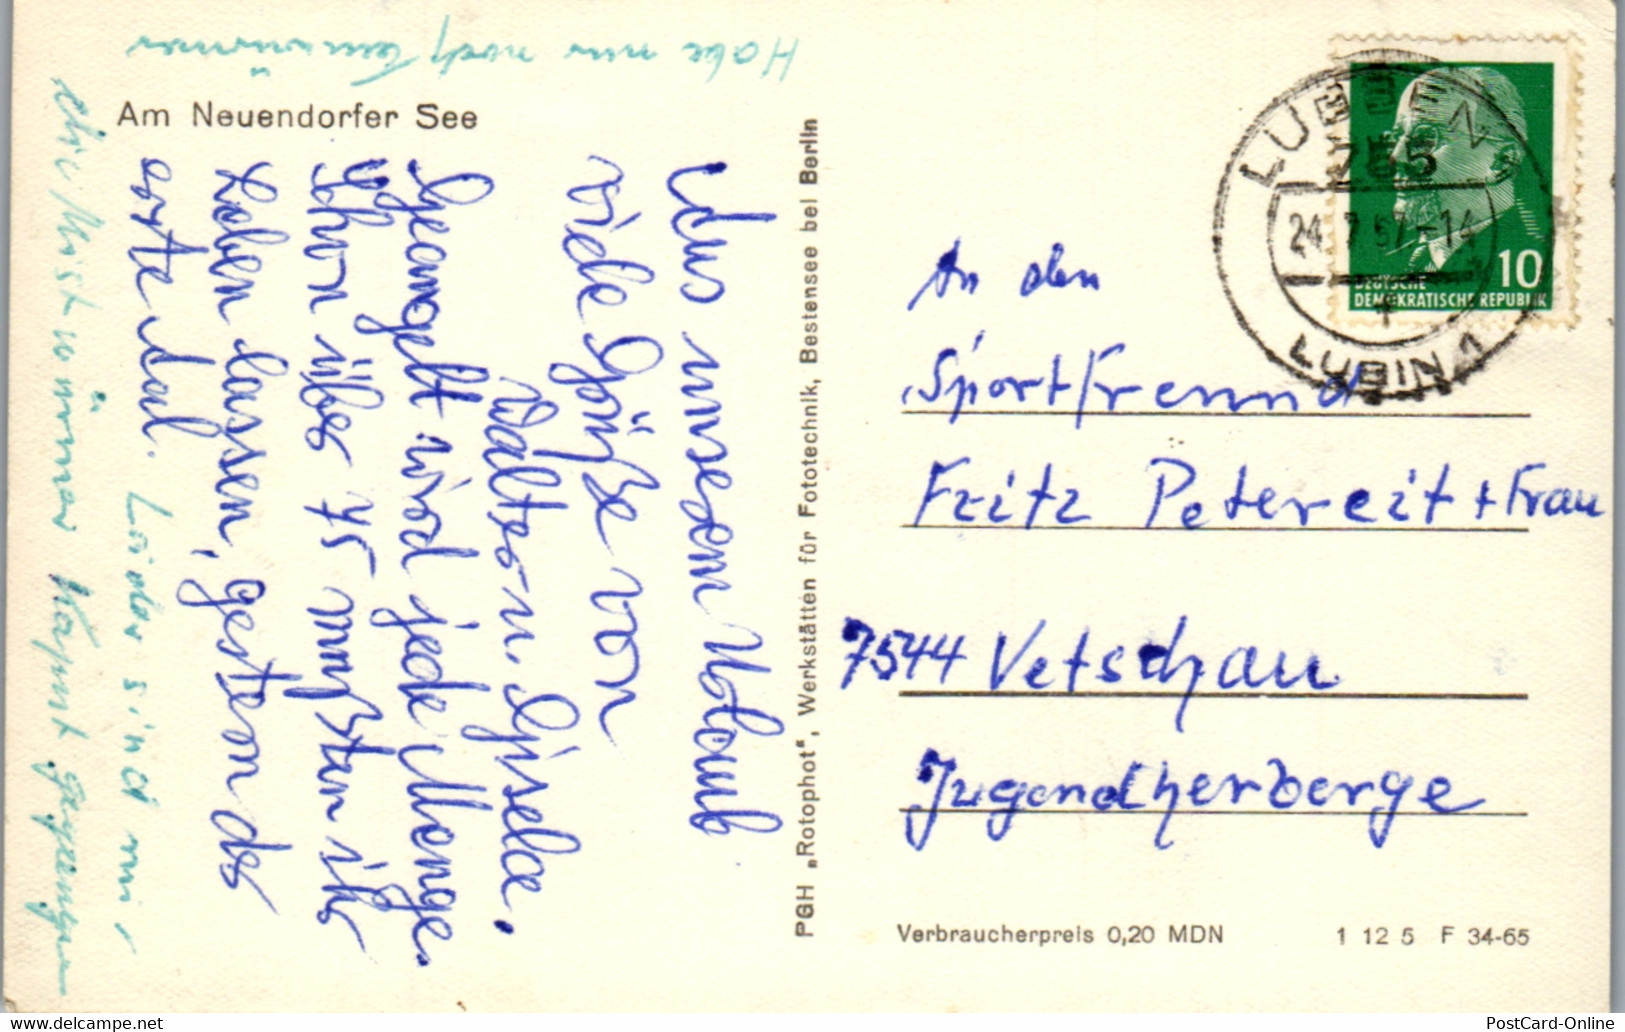 Am Neuendorfer See
Aus unserem Urlaub
viele Grüße von
Walter u. Gisela.
Geangelt wird jede Menge.
Schon über 75 mußten ihr
Leben lassen, gestern der
erste Aal. Leider sind mir
die Mistwürmer kaputt gegangen
Habe nur noch Tauwürmer
PGH „Rotophot“, Werkstätten für Fototechnik, Bestensee bei Berlin
LÜBBEN
755
24.7.67-14
LUBIN 1
10
DEUTSCHE
DEMOKRATISCHE REPUBLIK
An den
Sportfreund
Fritz Petereit + Frau
7544 Vetschau
Jugendherberge
Verbraucherpreis 0,20 MDN
1 12 5 F 34-65
PostCard-Online
https://www.delcampe.net